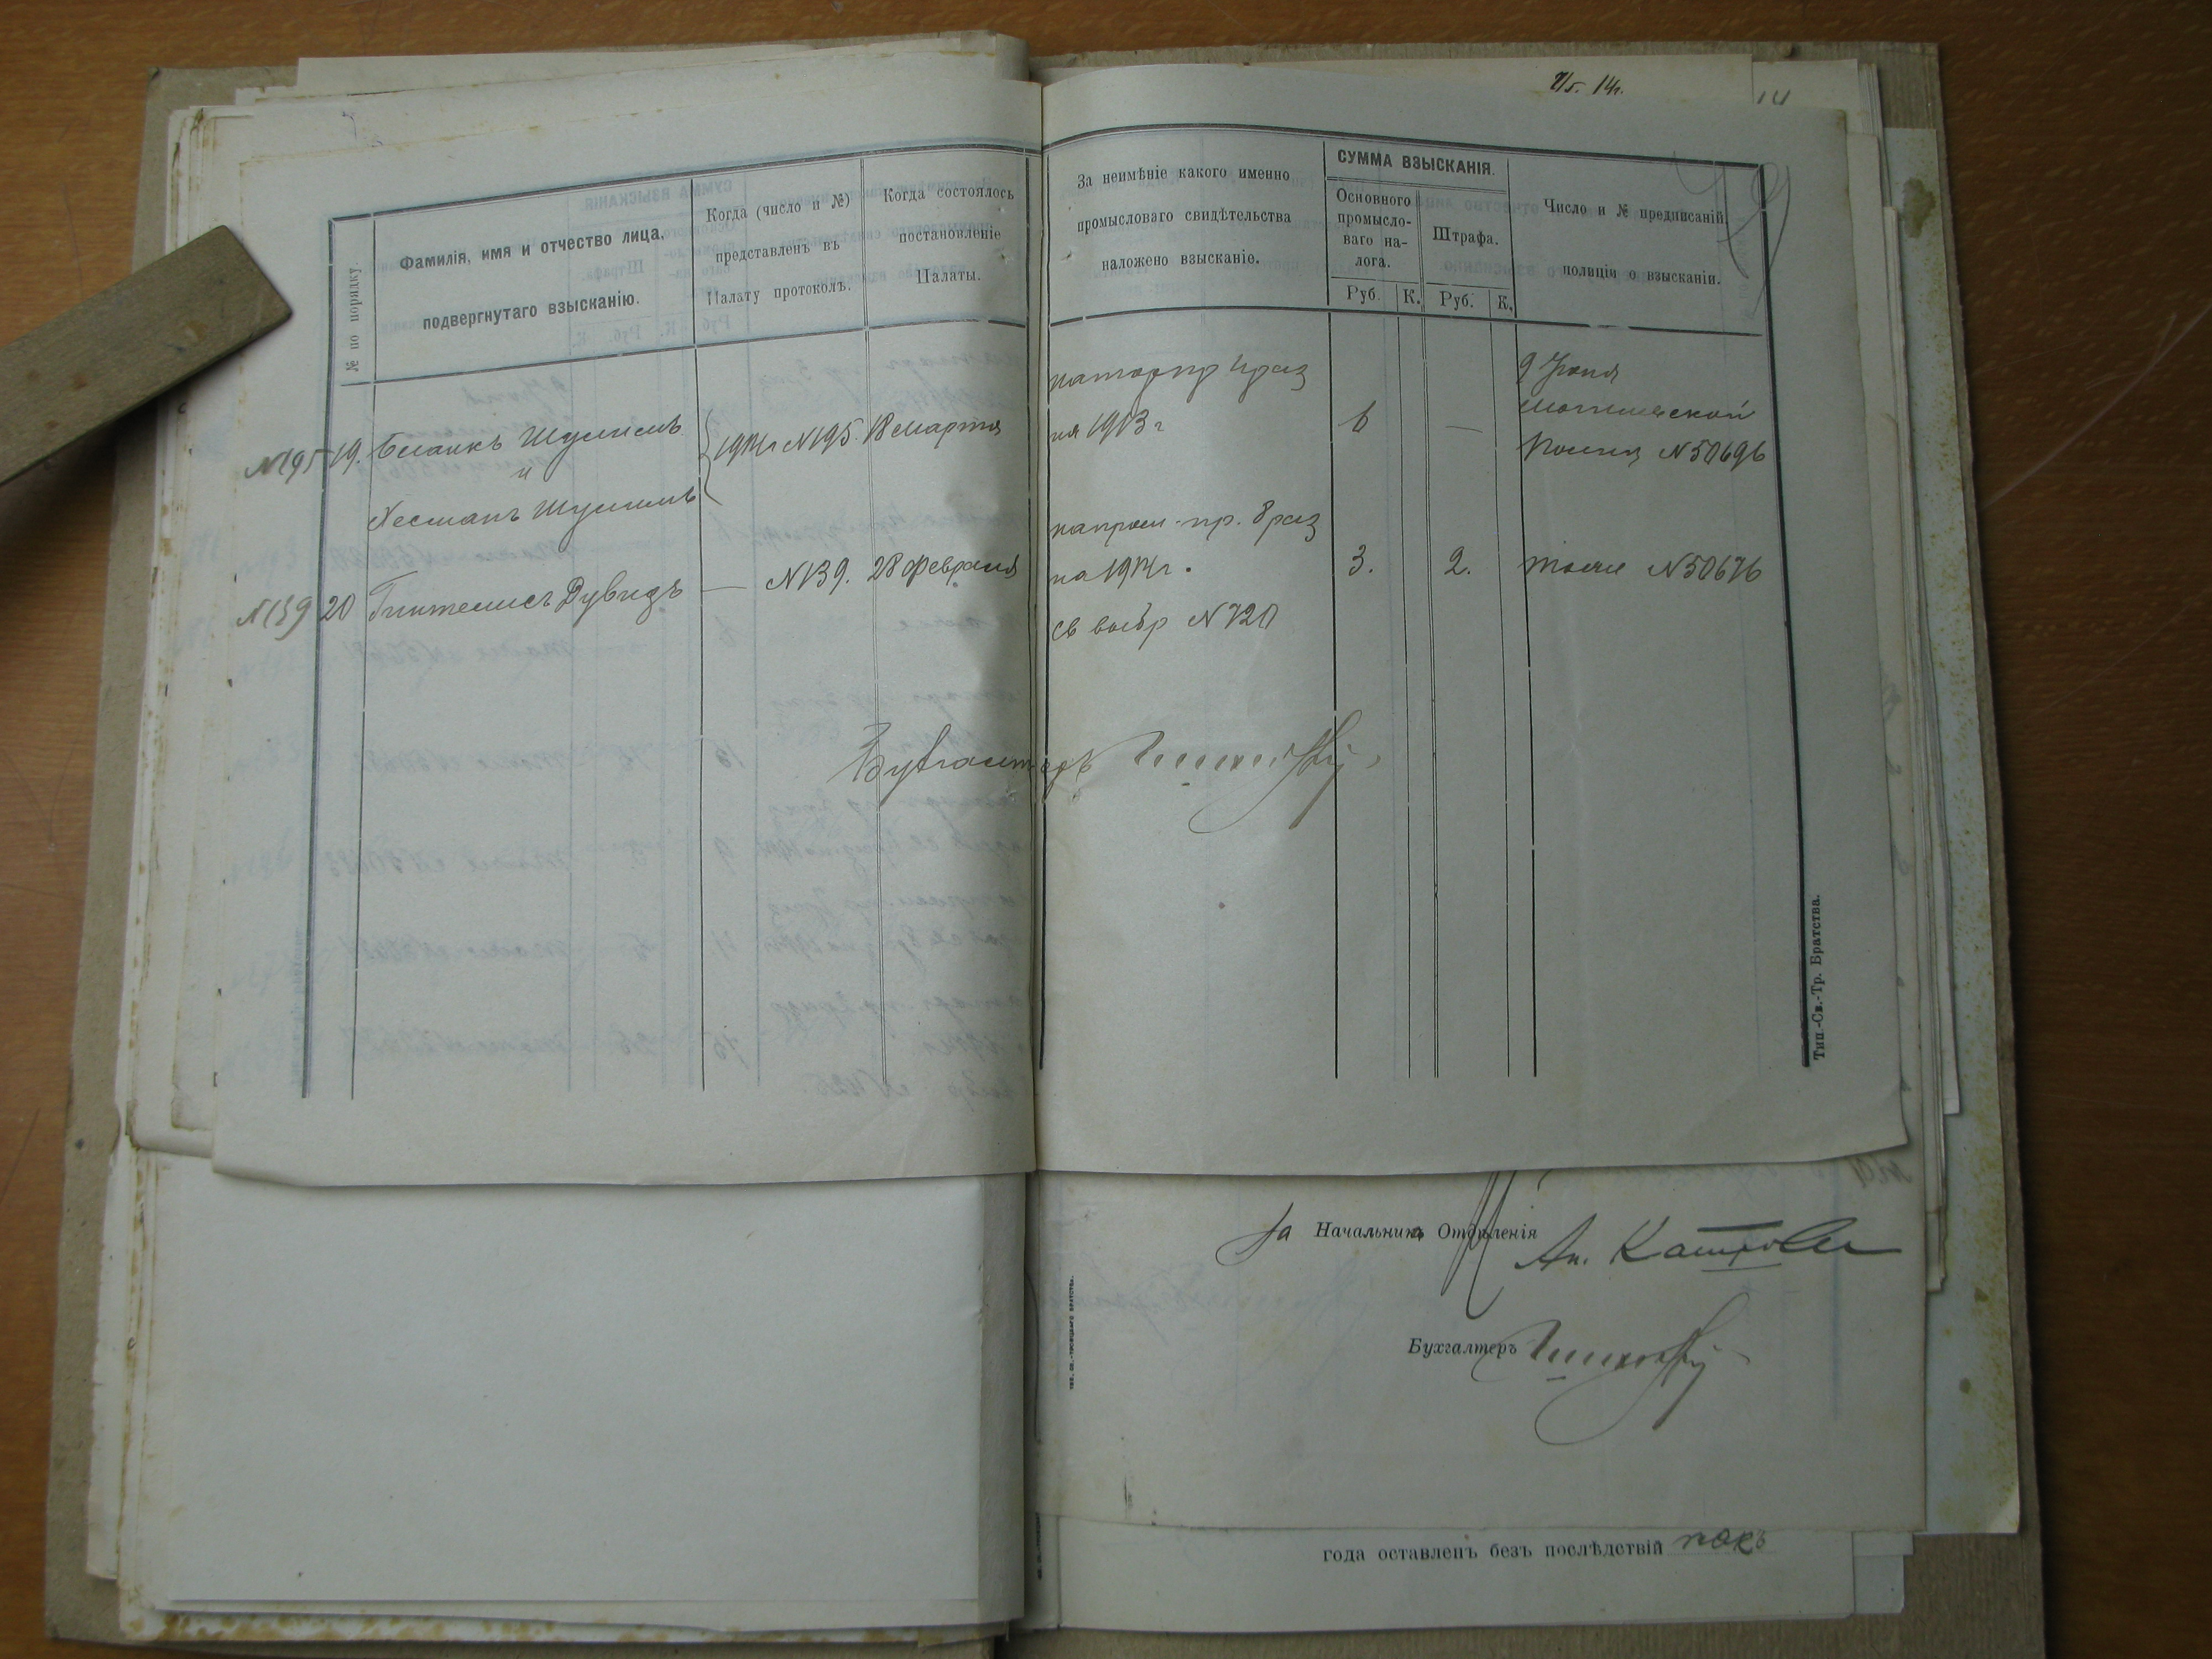 2/г. 14г.
14
№ по порядку.
Фамилія, имя и отчество лица,
подвергнутаго взысканію.
Когда (число и №)
представленъ въ
Палату протоколъ.
Когда состоялось
постановленіе
Палаты.
За неимѣніе какого именно
промысловаго свидѣтельства
наложено взысканіе.
СУММА ВЗЫСКАНІЯ.
Основного
промысло-
ваго на-
лога.
Штрафа.
Руб. К. Руб. К.
Число и № предписаній
полиціи о взысканіи.
N195 19. Бланкъ Шулимъ
и
Шулимъ
1914г N195. 18 марта
4 раз
на 1913 г
6 —
9 Іюня
Полиц N50696
N139 20 Гинтелисъ Рувидъ — N139. 28 февраля
пр. 8 раз
на 1914г.
св выбр N 720
3. 2. тоже N50676
Бухгалтеръ
Тип.-Св.-Тр. Братства.
За Начальника Отдѣленія
Ан.
Бухгалтеръ
года оставленъ безъ послѣдствій такъ